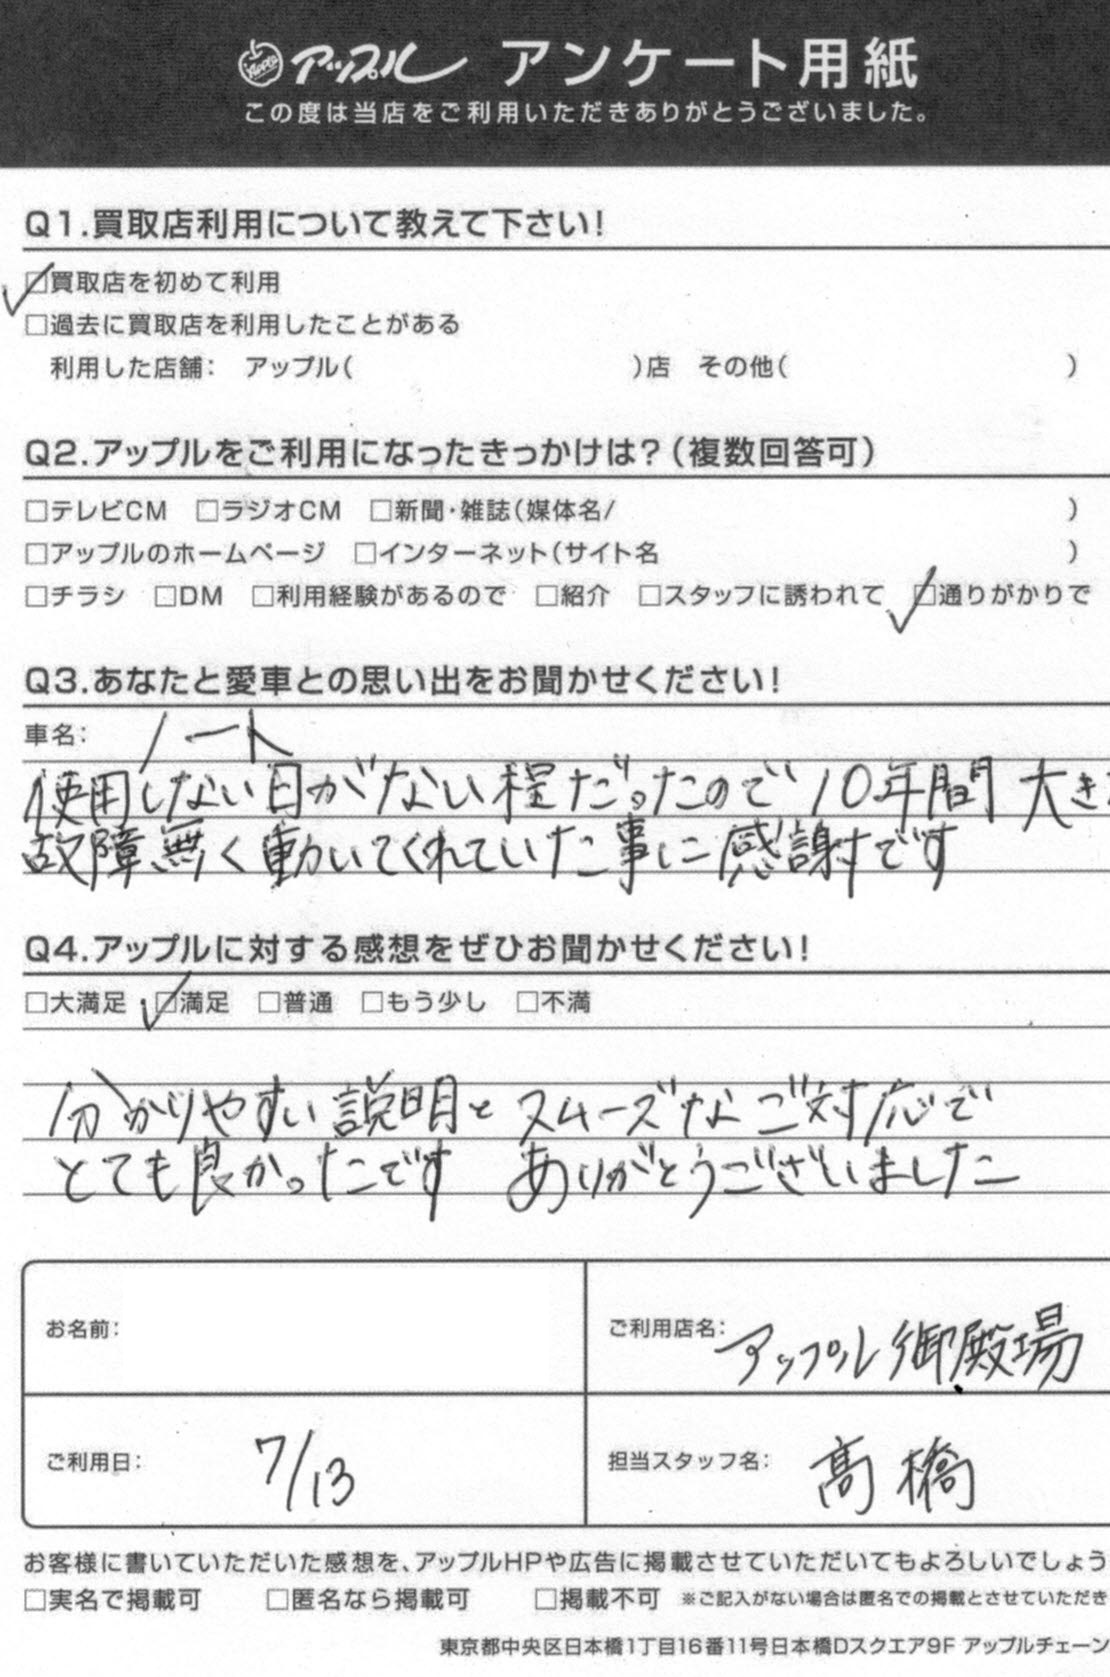 アップル アンケート用紙
この度は当店をご利用いただきありがとうございました。
Q1.買取店利用について教えて下さい!
□買取店を初めて利用
□過去に買取店を利用したことがある
利用した店舗: アップル( )店 その他( )
Q2.アップルをご利用になったきっかけは?(複数回答可)
□テレビCM □ラジオCM □新聞・雑誌(媒体名/ )
□アップルのホームページ □インターネット(サイト名 )
□チラシ □DM □利用経験があるので □紹介 □スタッフに誘われて □通りがかりで
Q3.あなたと愛車との思い出をお聞かせください!
車名: ノート
使用しない日がない程だったので 10年間 大き
故障無く動いてくれていた事に感謝です
Q4.アップルに対する感想をぜひお聞かせください!
□大満足 □満足 □普通 □もう少し □不満
分かりやすい説明と スムーズなご対応で
とても良かったです ありがとうございました
お名前:
ご利用店名: アップル御殿場
ご利用日: 7/13
担当スタッフ名: 髙橋
お客様に書いていただいた感想を、アップルHPや広告に掲載させていただいてもよろしいでしょう
□実名で掲載可 □匿名なら掲載可 □掲載不可 ※ご記入がない場合は匿名での掲載とさせていただき
東京都中央区日本橋1丁目16番11号日本橋Dスクエア9F アップルチェーン